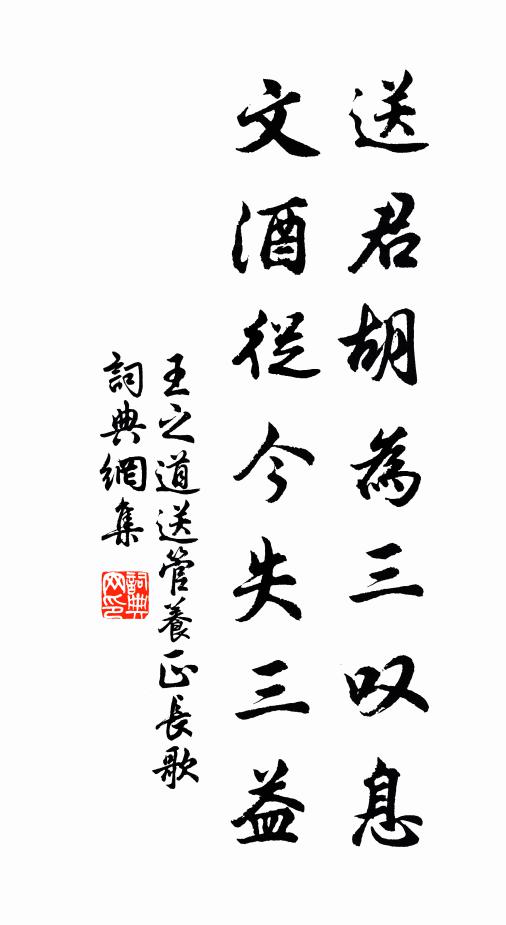 送君胡為三叹息
文酒從今失三益
王之道送管養正長歌
詞典網集
詞典网印